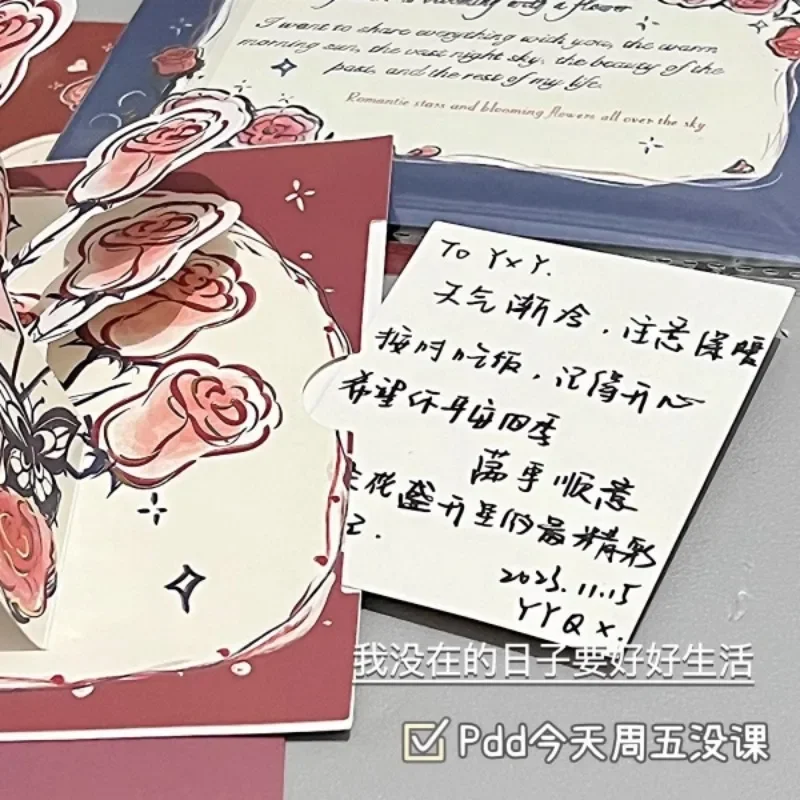 is blooming only a flower
I want to share everything with you, the warm
morning sun, the vast night sky, the beauty of the
past, and the rest of my life.
Romantic stars and blooming flowers all over the sky
To YxY.
天气渐冷，注意保暖
按时吃饭，记得开心
希望你平安四季
万事顺意
花盛开里的最精彩
2023.11.15
YYQx.
我没在的日子要好好生活
Pdd今天周五没课